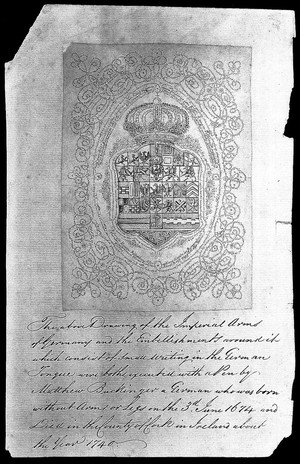 The above Drawing of the Imperial Arms
of Germany and the Embellishments around it
which consist of small writing in the German
Tongue were both executed with a Pen by
Matthew Buckinger a German who was born
without Arms or Legs on the 3d. June 1674 and
Died in the County of Cork in Ireland about
the Year 1740